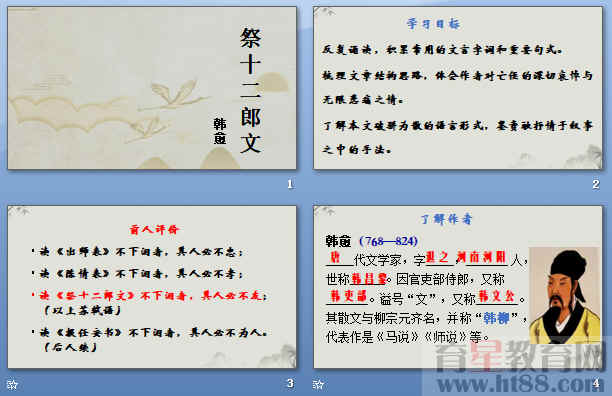 祭十二郎文
韩愈
1
学习目标
反复诵读，积累常用的文言字词和重要句式。
梳理文章结构思路，体会作者对亡侄的深切哀悼与
无限悲痛之情。
了解本文破骈为散的语言形式，鉴赏融抒情于叙事
之中的手法。
2
前人评价
• 读《出师表》不下泪者，其人必不忠；
• 读《陈情表》不下泪者，其人必不孝；
• 读《祭十二郎文》不下泪者，其人必不友；
（以上苏轼语）
• 读《报任安书》不下泪者，其人必不为人。
（后人续）
3
了解作者
韩愈（768—824）
唐代文学家，字退之，河南河阳人，
世称韩昌黎。因官吏部侍郎，又称
韩吏部。谥号“文”，又称韩文公。
其散文与柳宗元齐名，并称“韩柳”，
代表作是《马说》《师说》等。
4
育星教育网
www.ht88.com